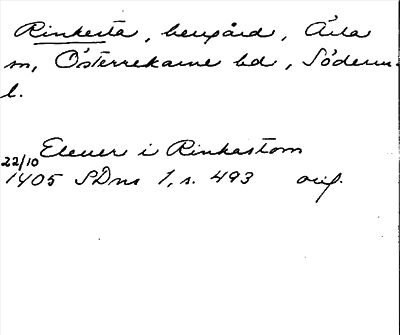 Rinkesta, herrgård, Ärla
sn, Österrekarne hd, Söderm.
l.
Elever i Rinkastom
22/10
1405 SDns 1, s. 493 orig.